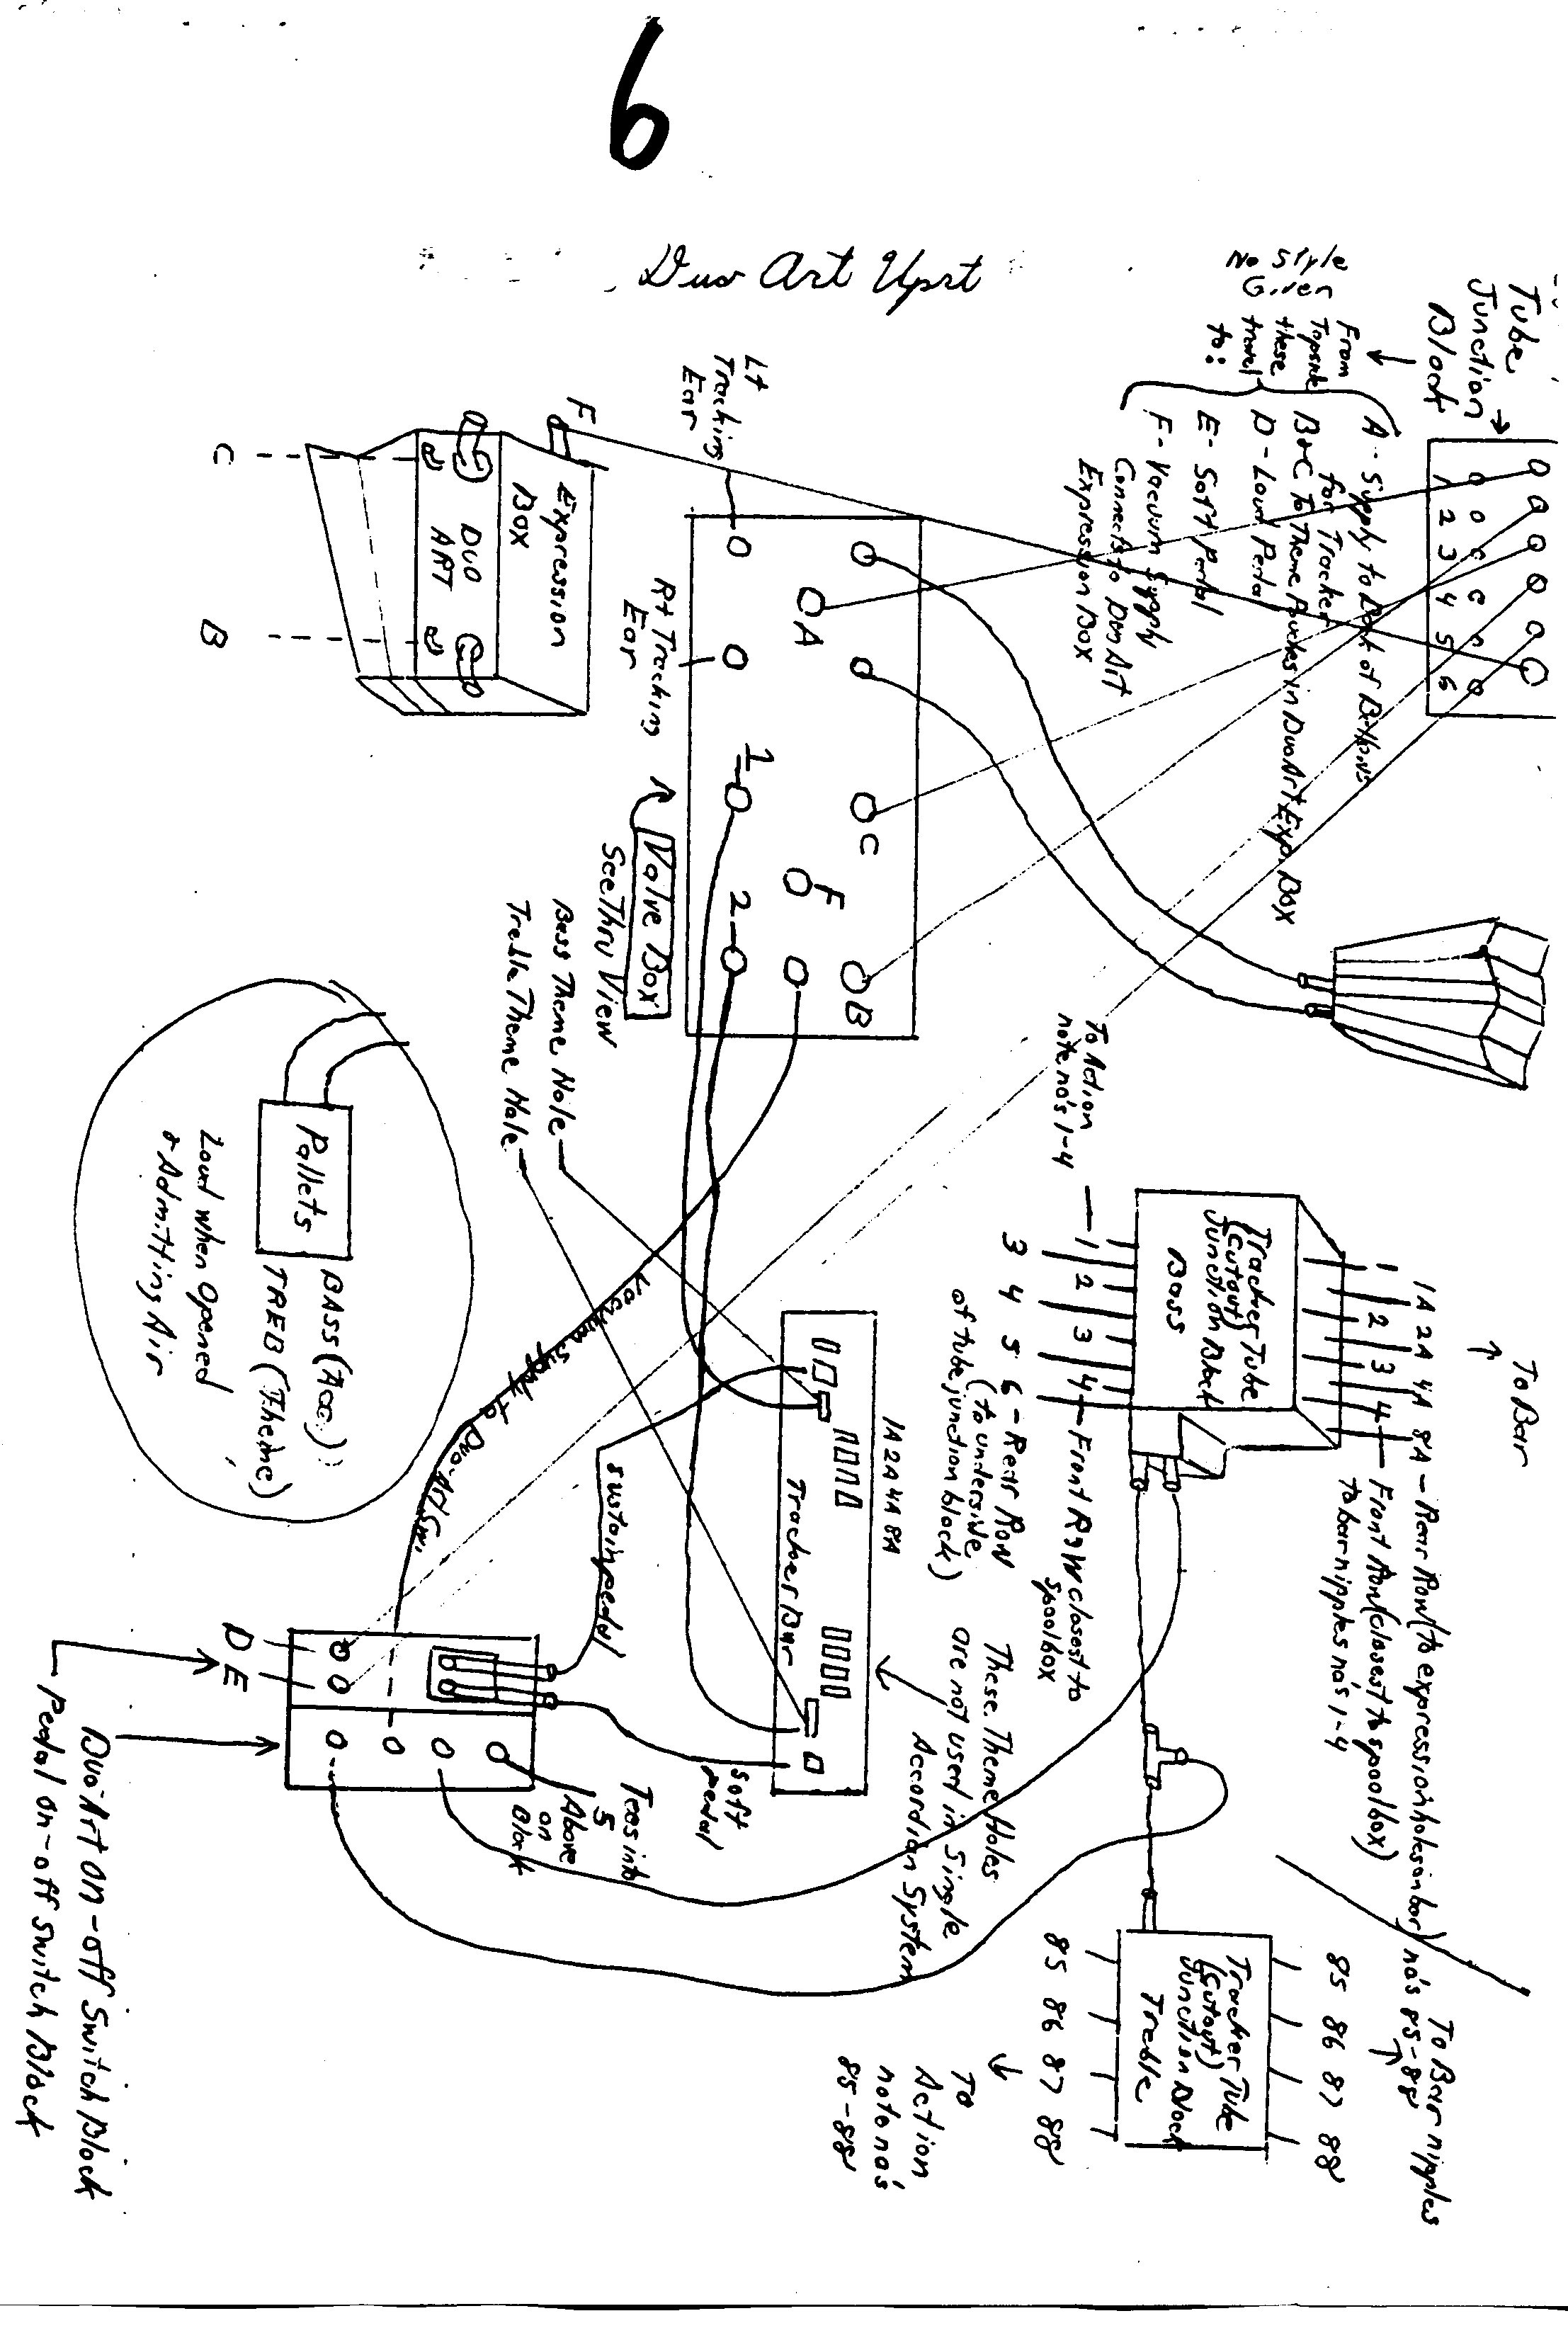 6
Duo Art Uprt
No Style
Given
Tube
Junction
Block
From
Topside
these
travel
to:
A - Supply to Back of Bellows
for Tracker
B+C To Theme Pouches in Duo Art Exp. Box
D - Loud Pedal
E - Soft Pedal
F - Vacuum Supply
Connects to Duo Art
Expression Box
1 2 3 4 5 6
Lt
Tracking
Ear
Rt Tracking
Ear
A
C
F
B
1
2
Valve Box
SeeThru View
F
Expression
Box
DUO
ART
C
B
Bass Theme Hole
Treble Theme Hole
Pallets
BASS (Acc)
TREB (Theme)
Loud when Opened
& Admitting Air
To Action
note no's 1-4
Tracker Tube
(Cutout)
Junction Block
Bass
To Bar
1A 2A 4A 8A - Rear Row (to expression holes in bar)
1 2 3 4 - Front Row (closest to spoolbox)
to bar nipples no's 1-4
1 2 3 4 - Front Row closest to
spoolbox
3 4 5 6 - Rear Row
(to underside
of tube junction block)
1A 2A 4A 8A
Tracker Bar
These Theme Holes
are not used in Single
Accordian System
Vacuum supply to Duo-Art Sw.
sustain pedal
Soft
pedal
Tees into
5
Above
on
Block
D
E
Duo-Art on-off Switch Block
Pedal on-off switch Block
To Bar nipples
no's 85-88
85 86 87 88
Tracker Tube
(Cutout)
Junction Block
Treble
85 86 87 88
To
Action
note no's
85-88